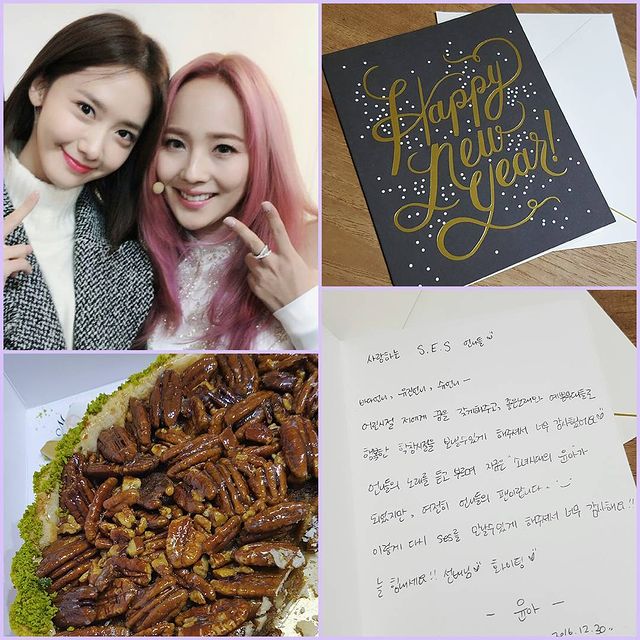 Happy
New
Year!
사랑하는 S.E.S 언니들
바다언니, 유진언니, 슈언니 -
어린시절 저에게 꿈을 갖게해주고, 좋은노래와 예쁜무대들로
행복한 학창시절을 보낼수있게 해주셔서 너무 감사했어요
언니들의 노래를 듣고 부르며 지금은 "소녀시대의 윤아"가
되었지만, 여전히 언니들의 팬이랍니다.
이렇게 다시 SES를 만날수있게 해주셔서 너무 감사해요!!
늘 힘내세요!! 선배님 화이팅
- 윤아 -
2016.12.30..